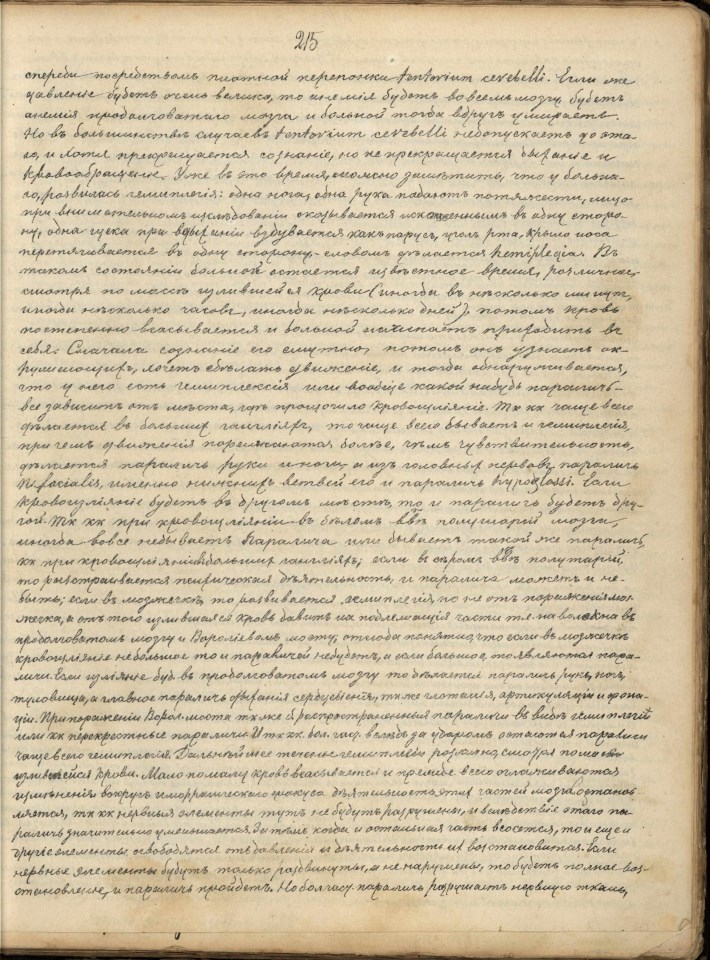 215
спереди посредствомъ плотной перепонки tentorium cerebelli. Если же
давленіе будетъ очень велико, то анемія будетъ во всемъ мозгу, будетъ
анемія продолговатаго мозга и больной тогда вдругъ умираетъ.
Но въ большинствѣ случаевъ tentorium cerebelli недопускаетъ до эта-
го, и хотя прекращается сознаніе, но не прекращается дыханіе и
кровообращеніе. Уже въ это время, можно замѣтить, что у больна-
го, развилась гемиплегія: одна нога, одна рука падаютъ по тяжести, лицо
при внимательномъ изслѣдованіи оказывается искаженнымъ въ одну сторо-
ну, одна щека при выдыханіи вздувается какъ парусъ, уголъ рта, крыло носа
перетягивается въ одну сторону,- словомъ дѣлается hemiplegia. Въ
такомъ состояніи больной остается извѣстное время, различное,
смотря по массѣ излившейся крови (иногда въ нѣсколько минутъ,
иногда нѣсколько часовъ, иногда нѣсколько дней), потомъ кровь
постепенно всасывается и больной начинаетъ приходить въ
себя. Сначала сознаніе его смутно, потомъ онъ узнаетъ ок-
ружающихъ, хочетъ сдѣлать движеніе, и тогда обнаруживается,
что у него есть гемиплексія или вообще какой нибудь параличъ-
все зависитъ отъ мѣста, гдѣ произошло кровоизліяніе. Тк кк чаще всего
дѣлается въ большихъ гангліяхъ, то чаще всего бываетъ и гемиплегія,
при чемъ движенія поражаются болѣе, чѣмъ чувствительность,
дѣлается параличъ руки и ноги, а изъ головныхъ нервовъ параличъ
N. facialis, именно нижнихъ вѣтвей его и параличъ hypoglossi. Если
кровоизліяніе будетъ въ другомъ мѣстѣ, то и параличъ будетъ дру-
гой. Тк кк при кровоизліяніи въ бѣломъ ввѣ полушарій мозга,
иногда вовсе небываетъ паралича или бываетъ такой же параличъ,
кк при кровоизліяніи въ большихъ гангліяхъ; если въ сѣромъ ввѣ полушарій,
то разстраивается психическая дѣятельность, и паралича можетъ и не-
быть; если въ мозжечкѣ, то развивается гемиплегія, но не отъ пораженія моз-
жечка, а отъ того излившаяся кровь давитъ на подлежащія части т.е. на волокна въ
продолговатомъ мозгу и Вароліевомъ мосту; отсюда понятно, что если въ мозжечкѣ
кровоизліяніе небольшое то и параличей небудетъ, а если большое, то являются пара-
личи. Если изліяніе буд. въ продолговатомъ мозгу то дѣлается параличъ рукъ, ногъ,
туловища, а главное параличъ дыханія сердцебіенія, тк же глотанія, артикуляціи и фона-
ціи. При пораженіи Варол. моста тк же б. распространенныя параличи въ видѣ гемиплегій
или кк перекрестные параличи. Итк кк бол. час. вслѣдъ за ударомъ остаются параличи
чаще всего гемиплегія. Дальнѣйшее теченіе гемиплегіи различно, смотря по массѣ
излившейся крови. Мало помалу кровь всасывается и прежде всего сглаживаются
измѣненія вокругъ геморрагическаго фокуса дѣятельность этихъ частей мозга возстанов-
ляется, тк кк нервныя элементы тутъ не будутъ разрушены, и вслѣдствіе этаго па-
раличъ значительно уменьшается. За тѣмъ когда и остальная часть всосется, то и еще и
другіе элементы освободятся отъ давленія и дѣятельность их возстановится. Если
нервные элементы будутъ только раздвинуты, а не нарушены, то будетъ полное воз-
становленіе, и параличъ пройдетъ. Но бол. час. параличъ разрушаетъ нервную ткань,